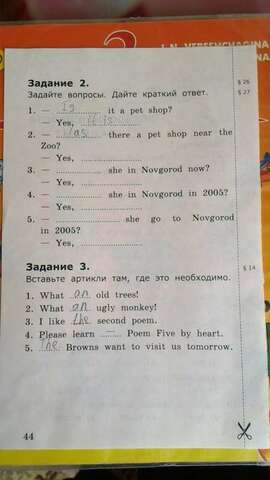 I.N. VERESHCHAGINA
Задание 2.
§ 26
Задайте вопросы. Дайте краткий ответ.
§ 27
1. — Is it a pet shop?
— Yes, it is
2. — Was there a pet shop near the
Zoo?
— Yes, ....................
3. — .................... she in Novgorod now?
— Yes, ....................
4. — .................... she in Novgorod in 2005?
— Yes, ....................
5. — .................... she go to Novgorod
in 2005?
— Yes, ....................
Задание 3.
§ 14
Вставьте артикли там, где это необходимо.
1. What an old trees!
2. What an ugly monkey!
3. I like the second poem.
4. Please learn — Poem Five by heart.
5. The Browns want to visit us tomorrow.
44